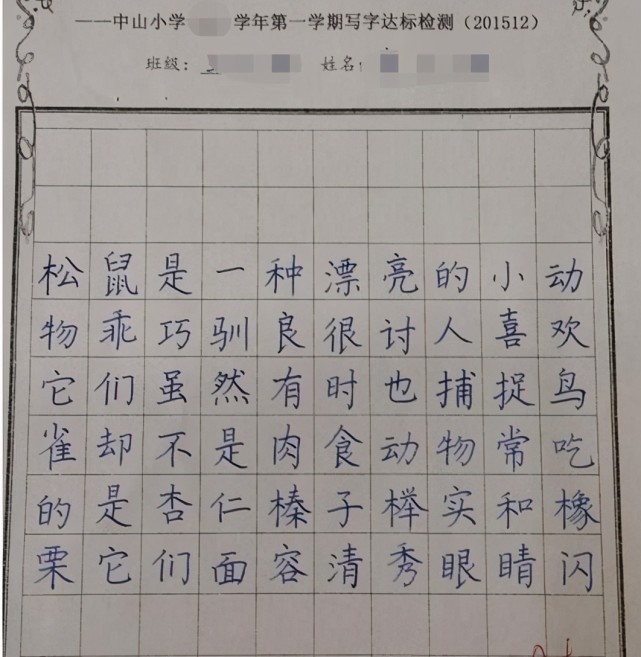 ——中山小学 学年第一学期写字达标检测（201512）
班级： 姓名：
松鼠是一种漂亮的小动
物乖巧驯良很讨人喜欢
它们虽然有时也捕捉鸟
雀却不是肉食动物常吃
的是杏仁榛子榉实和橡
栗它们面容清秀眼睛闪